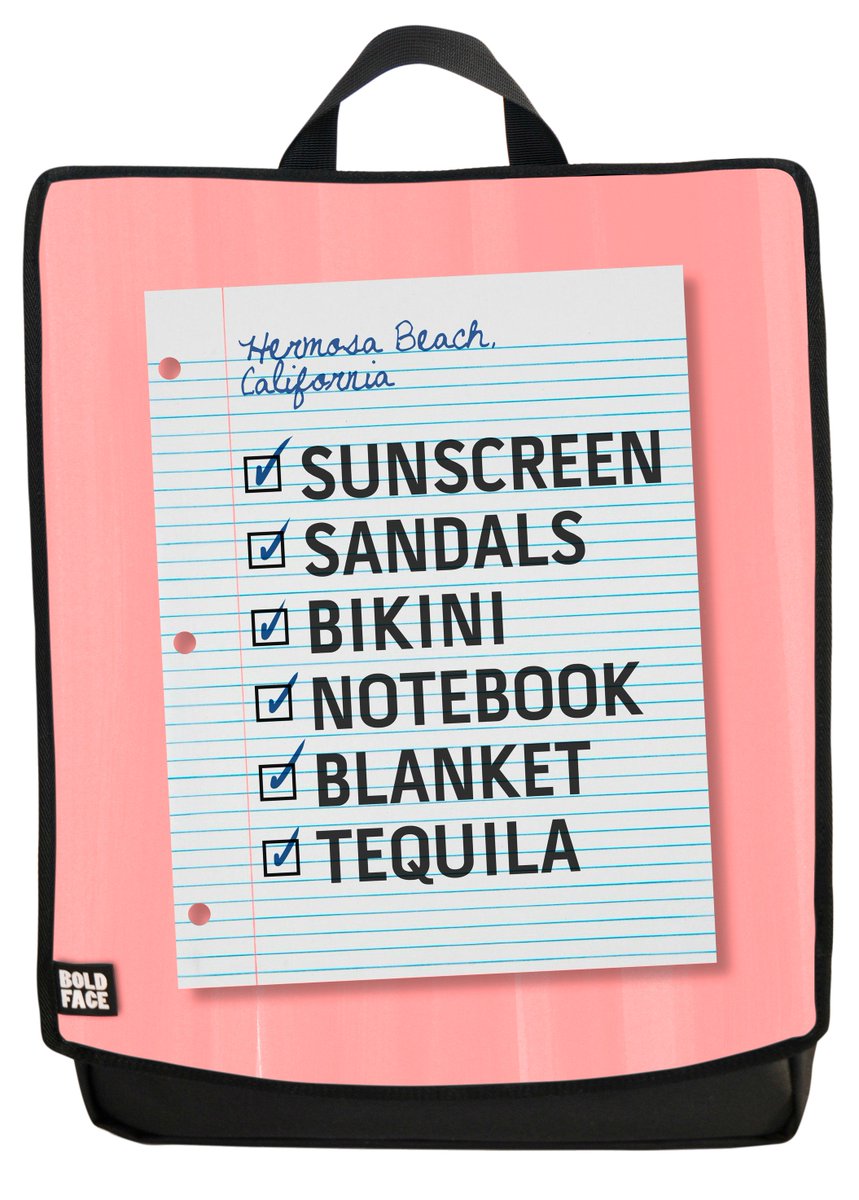 Hermosa Beach,
California
SUNSCREEN
SANDALS
BIKINI
NOTEBOOK
BLANKET
TEQUILA
BOLD
FACE